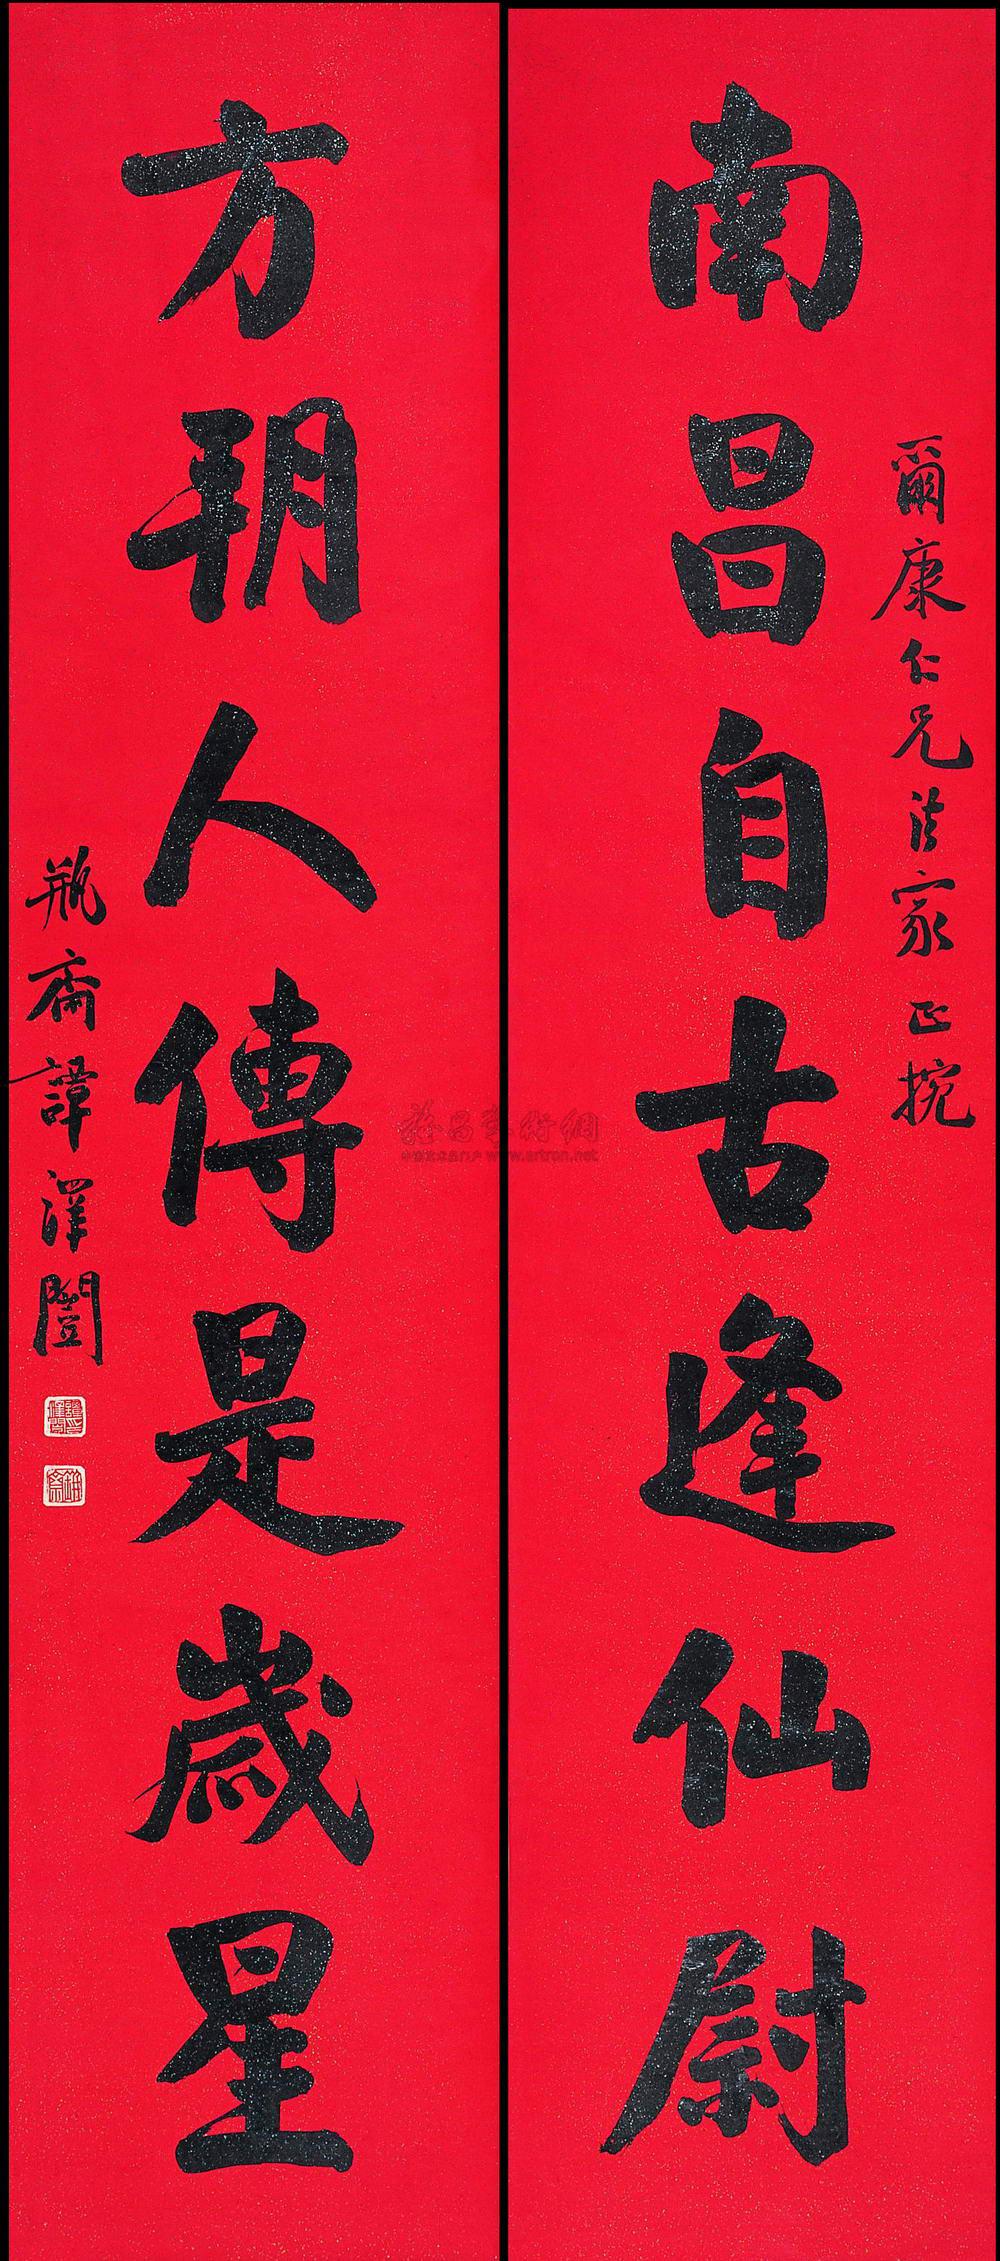 南昌自古逢仙尉
爾康仁兄法家正捥
方朔人傳是歲星
瓶齋譚澤闓
www.artron.net